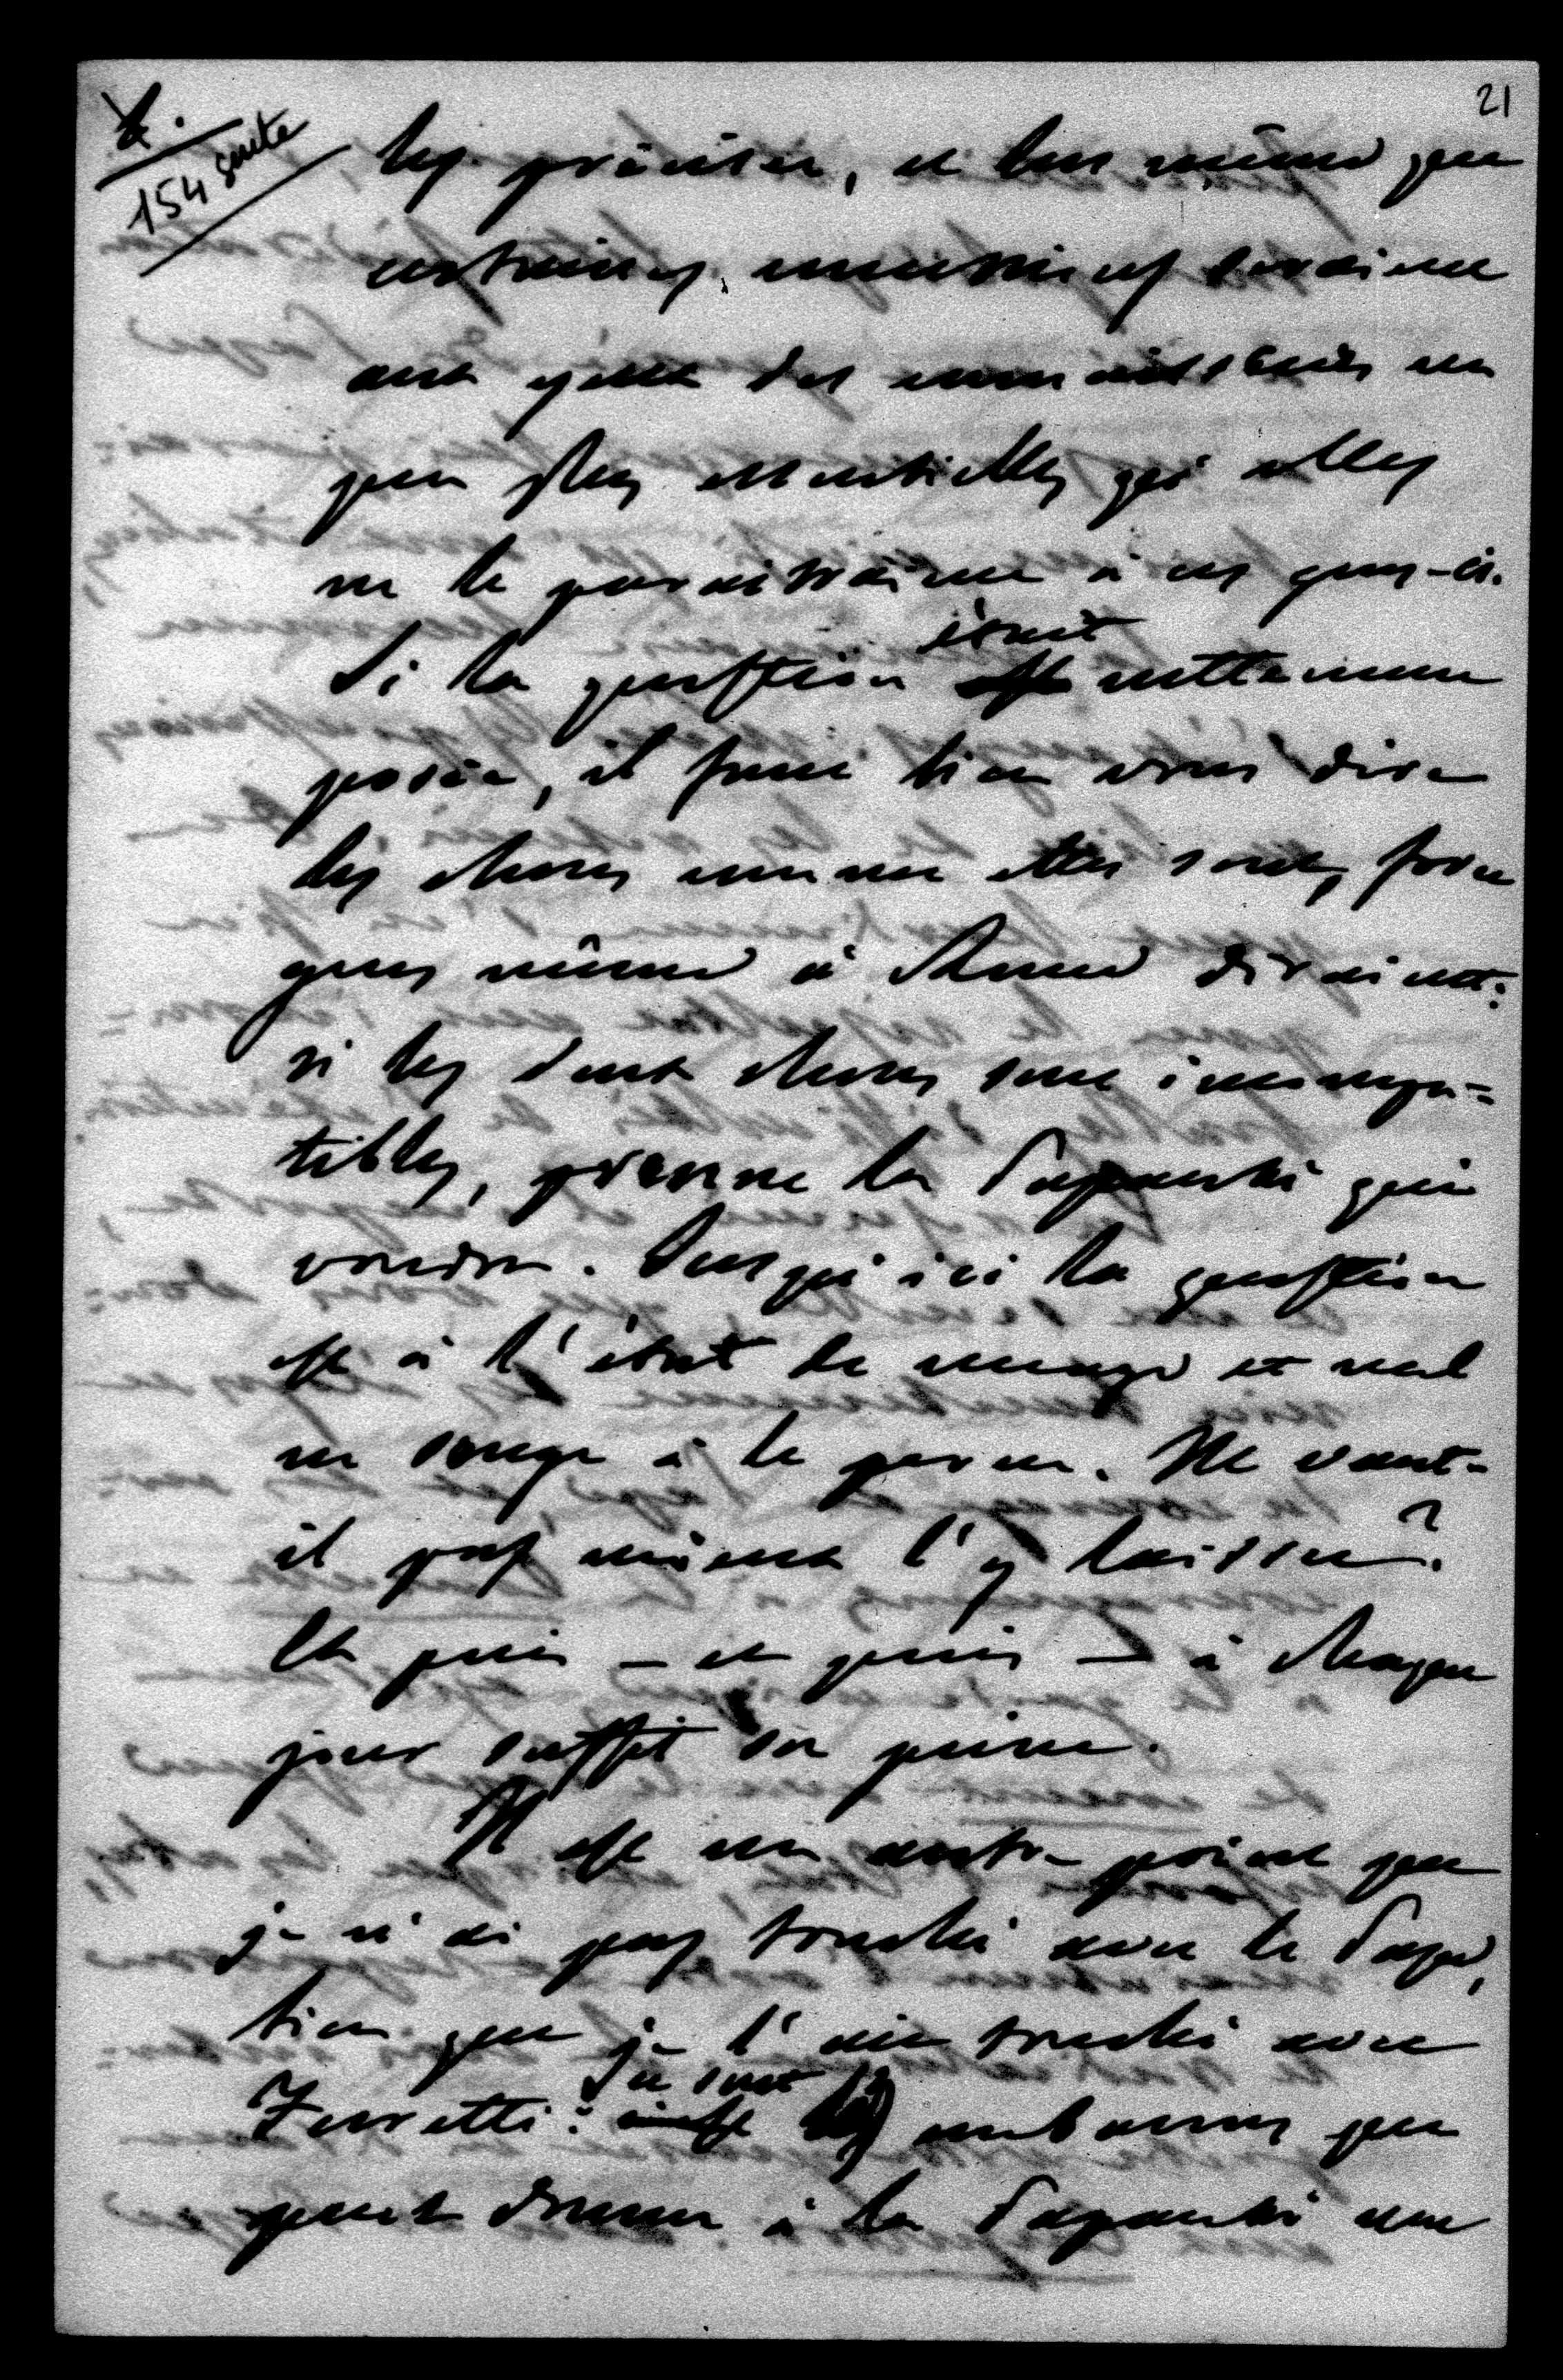 21
4.
154 suite
les préciser, et lors même que
certaines concessions seraient
aux yeux des commissaires un
peu plus essentielles qu'elles
ne le paraîtraient à ces gens-ci.
Si la question était nettement
posée, il faut bien vous dire
les choses comme elles sont, force
gens même à Rome diraient:
si les deux choses sont incompa=
tibles, prenne la Papauté qui
voudra. Jusqu'ici la question
est à l'état de nuage et nul
ne songe à le percer. Ne vaut-
il pas mieux l'y laisser?
Et puis – et puis – à chaque
jour suffit sa peine.
Il est un autre point que
je n'ai pas touché avec le Pape,
bien que je l'aie touché avec
Ferretti: ce sont les embarras que
peut donner à la Papauté une